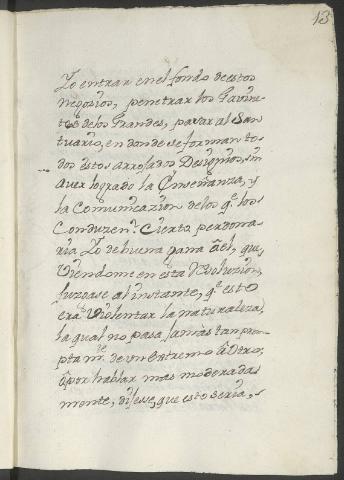 13
Yo entrar en el fondo de estos
negocios, penetrar los Gavine-
tes de los Grandes, pasar al San
tuario, en donde se forman to-
dos estos arrojados Designios, sin
aver logrado la Enseñanza, y
la Comunicazion de los q.e los
Conduzen. Cierto perdona-
ria Yo de buena gana â el, que,
Viendome en esta Resoluzion,
juzgase al instante, q.e esto
era Violentar la naturaleza,
la qual no pasa jamàs tan prom-
ptam.te de un extremo â Otro;
ô por hablar mas moderadas
mente, dijese, que esto seria,